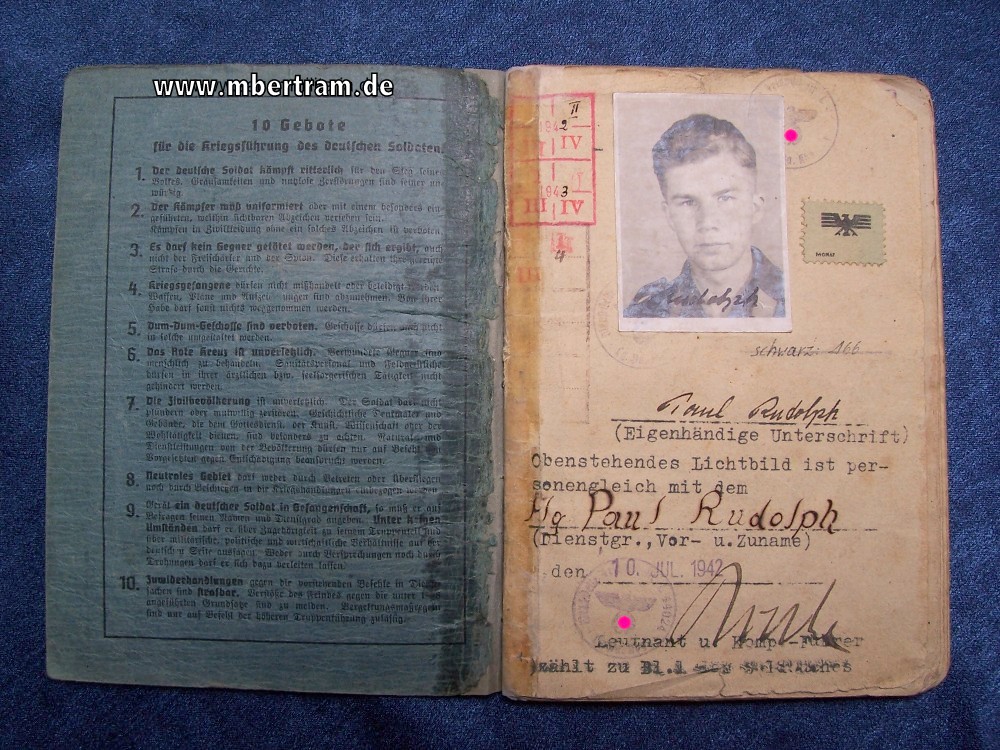 www.mbertram.de
10 Gebote
für die Kriegsführung des deutschen Soldaten.
1. Der deutsche Soldat kämpft ritterlich für den Sieg seines
Volkes. Grausamkeiten und nutzlose Zerstörungen sind seiner un-
würdig.
2. Der Kämpfer muß uniformiert oder mit einem besonders ein-
geführten, weithin sichtbaren Abzeichen versehen sein.
Kämpfen in Zivilkleidung ohne ein solches Abzeichen ist verboten
3. Es darf kein Gegner getötet werden, der sich ergibt, auch
nicht der Freischärler und der Spion. Diese erhalten ihre gerechte
Strafe durch die Gerichte.
4. Kriegsgefangene dürfen nicht mißhandelt oder beleidigt werden.
Waffen, Pläne und Aufzeichnungen sind abzunehmen. Von ihrer
Habe darf sonst nichts weggenommen werden.
5. Dum-Dum-Geschosse sind verboten. Geschosse dürfen auch nicht
in solche umgestaltet werden.
6. Das Rote Kreuz ist unverletzlich. Verwundete Gegner sind
menschlich zu behandeln. Sanitätspersonal und Feldgeistliche
dürfen in ihrer ärztlichen bzw. seelsorgerischen Tätigkeit nicht
gehindert werden.
7. Die Zivilbevölkerung ist unverletzlich. Der Soldat darf nicht
plündern oder mutwillig zerstören. Geschichtliche Denkmäler und
Gebäude, die dem Gottesdienst, der Kunst, Wissenschaft oder der
Wohltätigkeit dienen, sind besonders zu achten. Natural- und
Dienstleistungen von der Bevölkerung dürfen nur auf Befehl von
Vorgesetzten gegen Entschädigung beansprucht werden.
8. Neutrales Gebiet darf weder durch Betreten oder Überfliegen
noch durch Beschießen in die Kriegshandlungen einbezogen werden
9. Gerät ein deutscher Soldat in Gefangenschaft, so muß er auf
Befragen seinen Namen und Dienstgrad angeben. Unter keinen
Umständen darf er über Zugehörigkeit zu seinem Truppenteil und
über militärische, politische und wirtschaftliche Verhältnisse auf der
deutschen Seite aussagen. Weder durch Versprechungen noch durch
Drohungen darf er sich dazu verleiten lassen.
10. Zuwiderhandlungen gegen die vorstehenden Befehle in Dienst-
sachen sind strafbar. Verstöße des Feindes gegen die unter 1-8
angeführten Grundsätze sind zu melden. Vergeltungsmaßregeln
sind nur auf Befehl der höheren Truppenführung zulässig.
II
1942
III IV
1943
III IV
4
III
Rudolph
MONAT
schwarz 466
Paul Rudolph
(Eigenhändige Unterschrift)
Obenstehendes Lichtbild ist per-
sonengleich mit dem
Flg Paul Rudolph
(Dienstgr.,Vor- u.Zuname)
den 10. JUL. 1942
Leutnant u. Komp.-Führer
zählt zu Bl.1 des Soldbuches